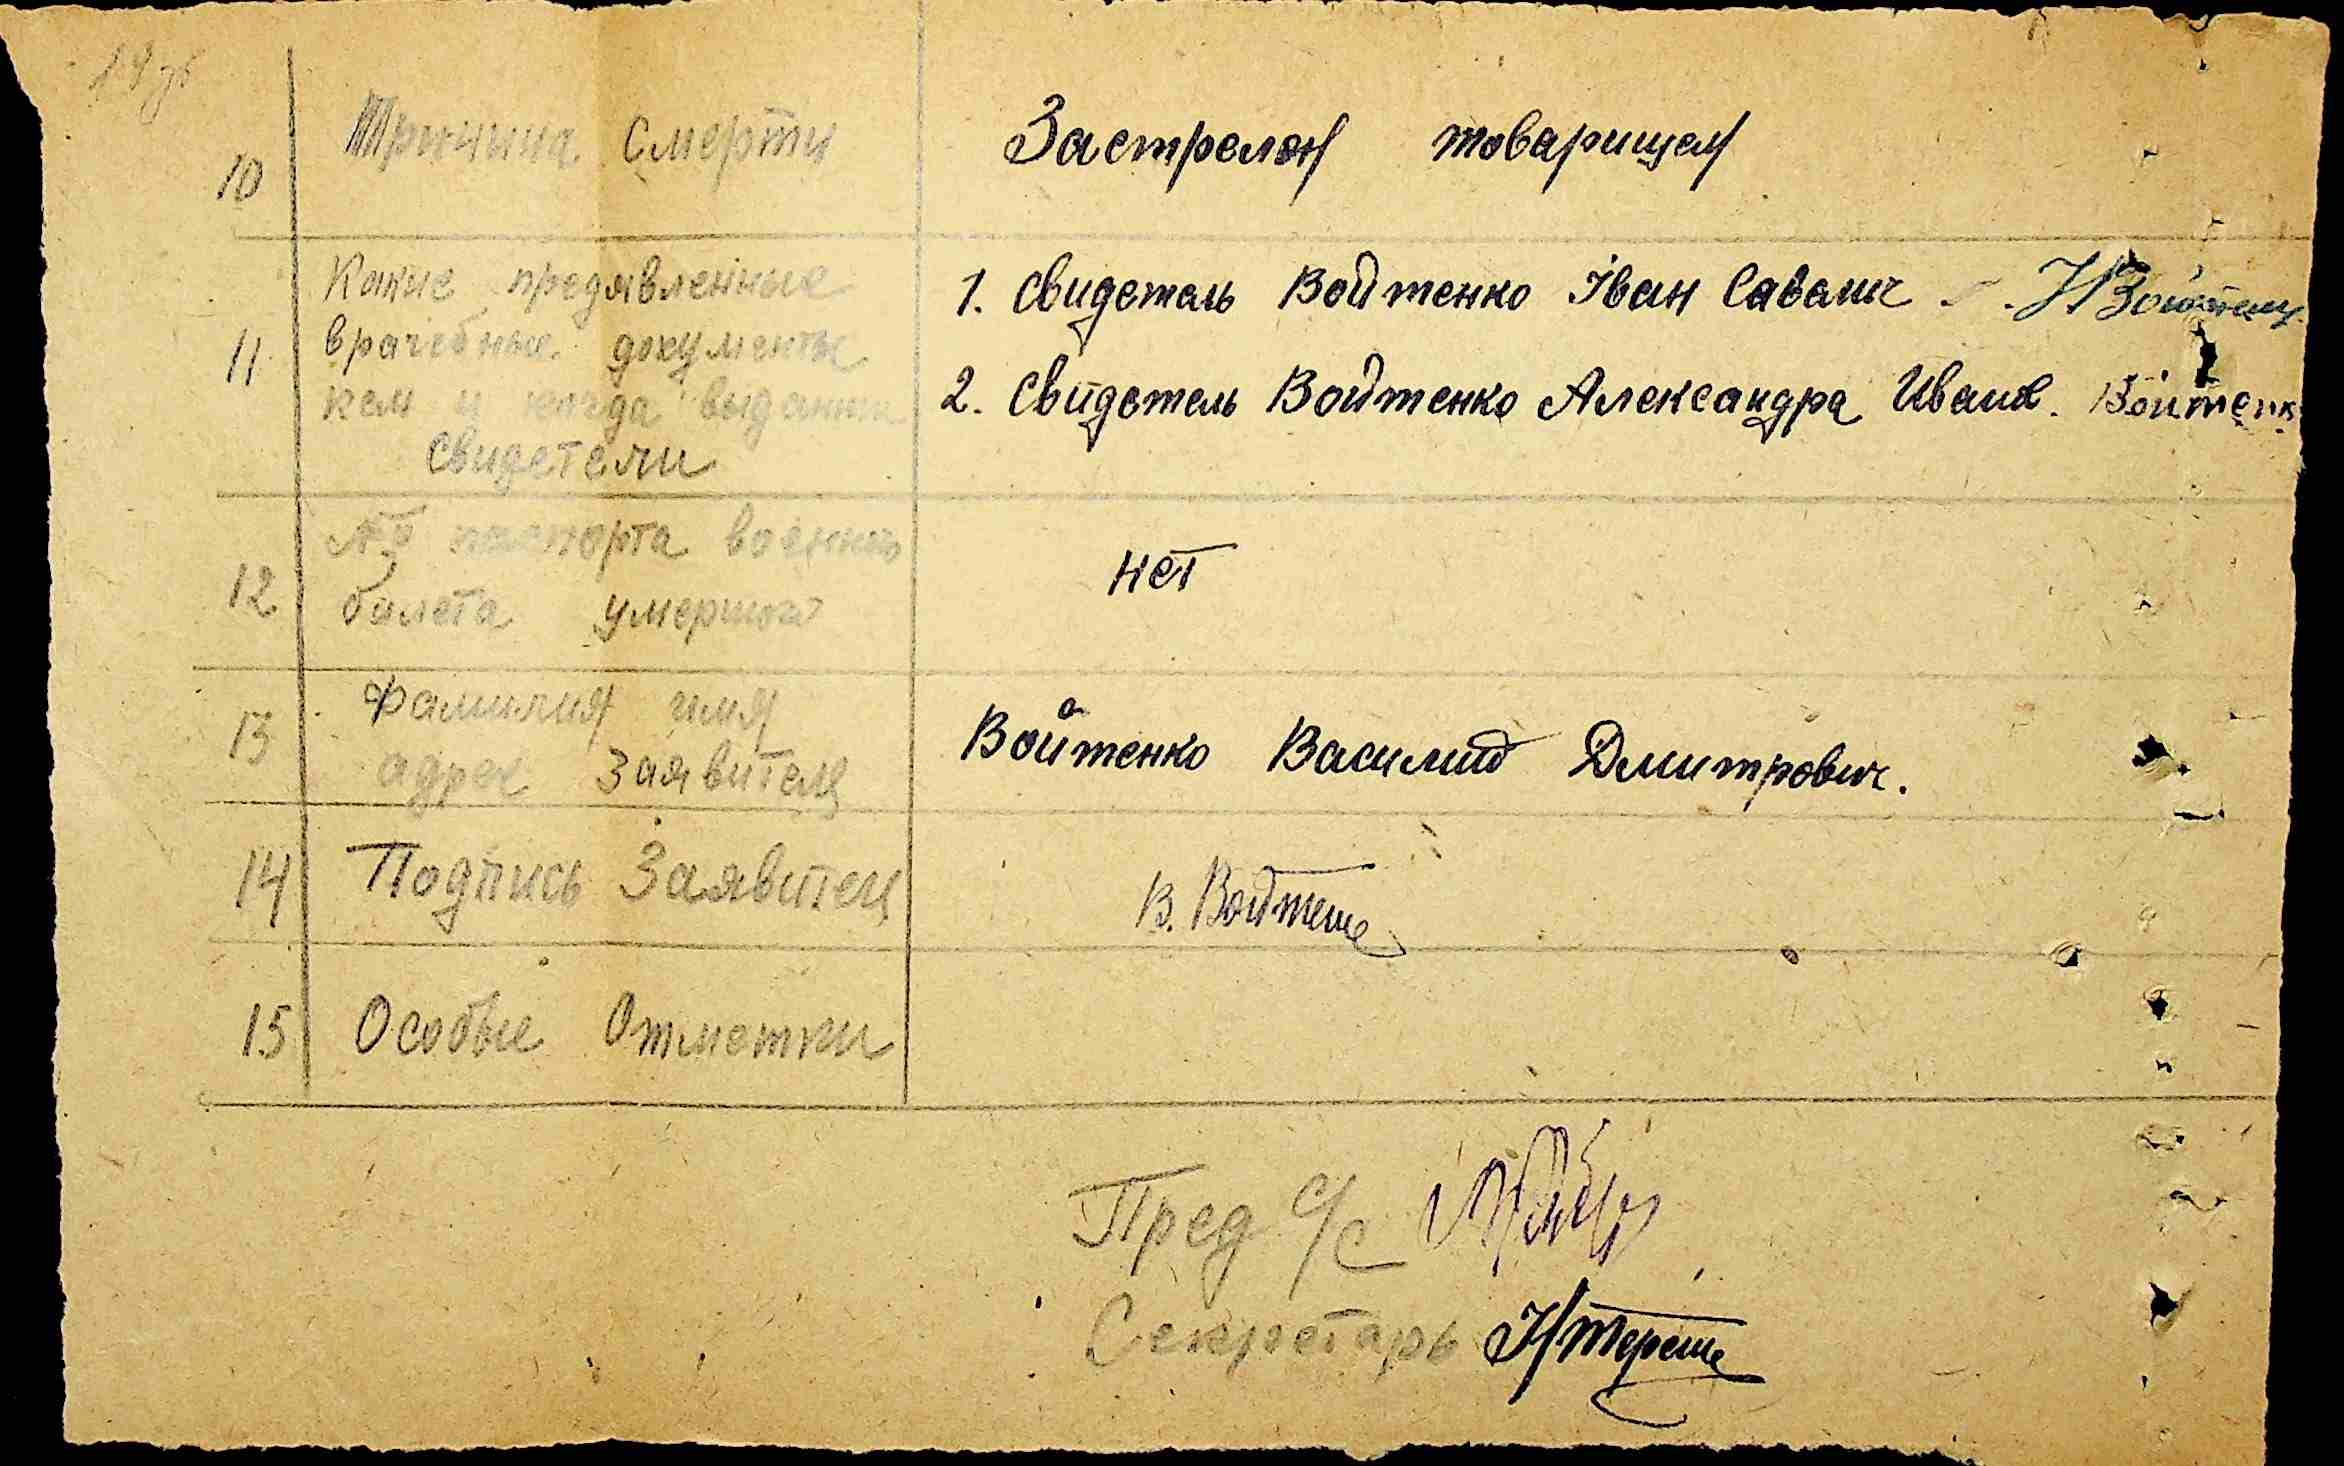 10 Причина Смерти Застрелен товарищем
11 Какие предявленные
врачебные документы
кем и когда выданы
свидетели
1. Свидетель Войтенко Іван Савелич
2. Свидетель Войтенко Александра Иванв. Войтенк
12 № паспорта военного
билета умершого
нет
13 Фамилия имя
адрес Заявителя
Войтенко Василий Дмитрович.
14 Подпись Заявителя В. Войтенко
15 Особые Отметки
Пред с/с
Секретарь